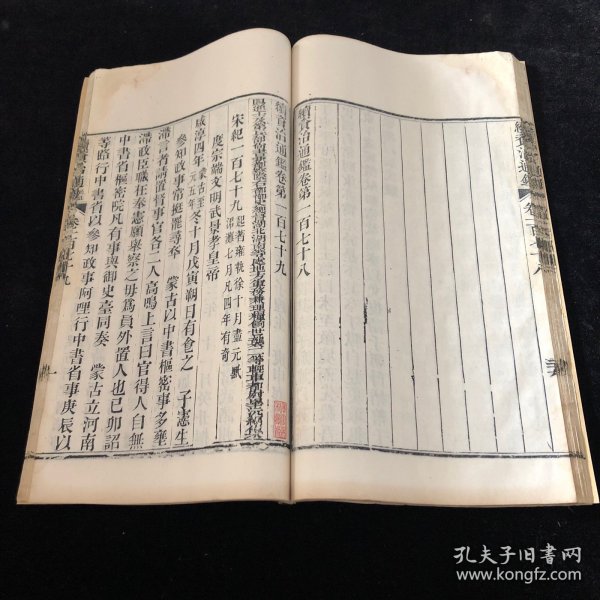 續資治通鑑卷第一百七十八
續資治通鑑卷第一百七十九
宋紀一百七十九 起著雍執徐十月盡元黓涒灘七月凡四年有奇
度宗端文明武景孝皇帝
咸淳四年 蒙古至元五年 冬十月戊寅朔日有食之 子憲生
參知政事常挺罷尋卒 蒙古以中書樞密事多壅
滯言者請置督事官各二人高鳴上言曰官得人自無
滯政臣職在奉憲願舉察之毋為員外置人也己卯詔
中書省樞密院凡有事與御史臺同奏 蒙古立河南
等路行中書省以參知政事阿里行中書省事庚辰以
孔夫子旧书网
www.kongfz.com